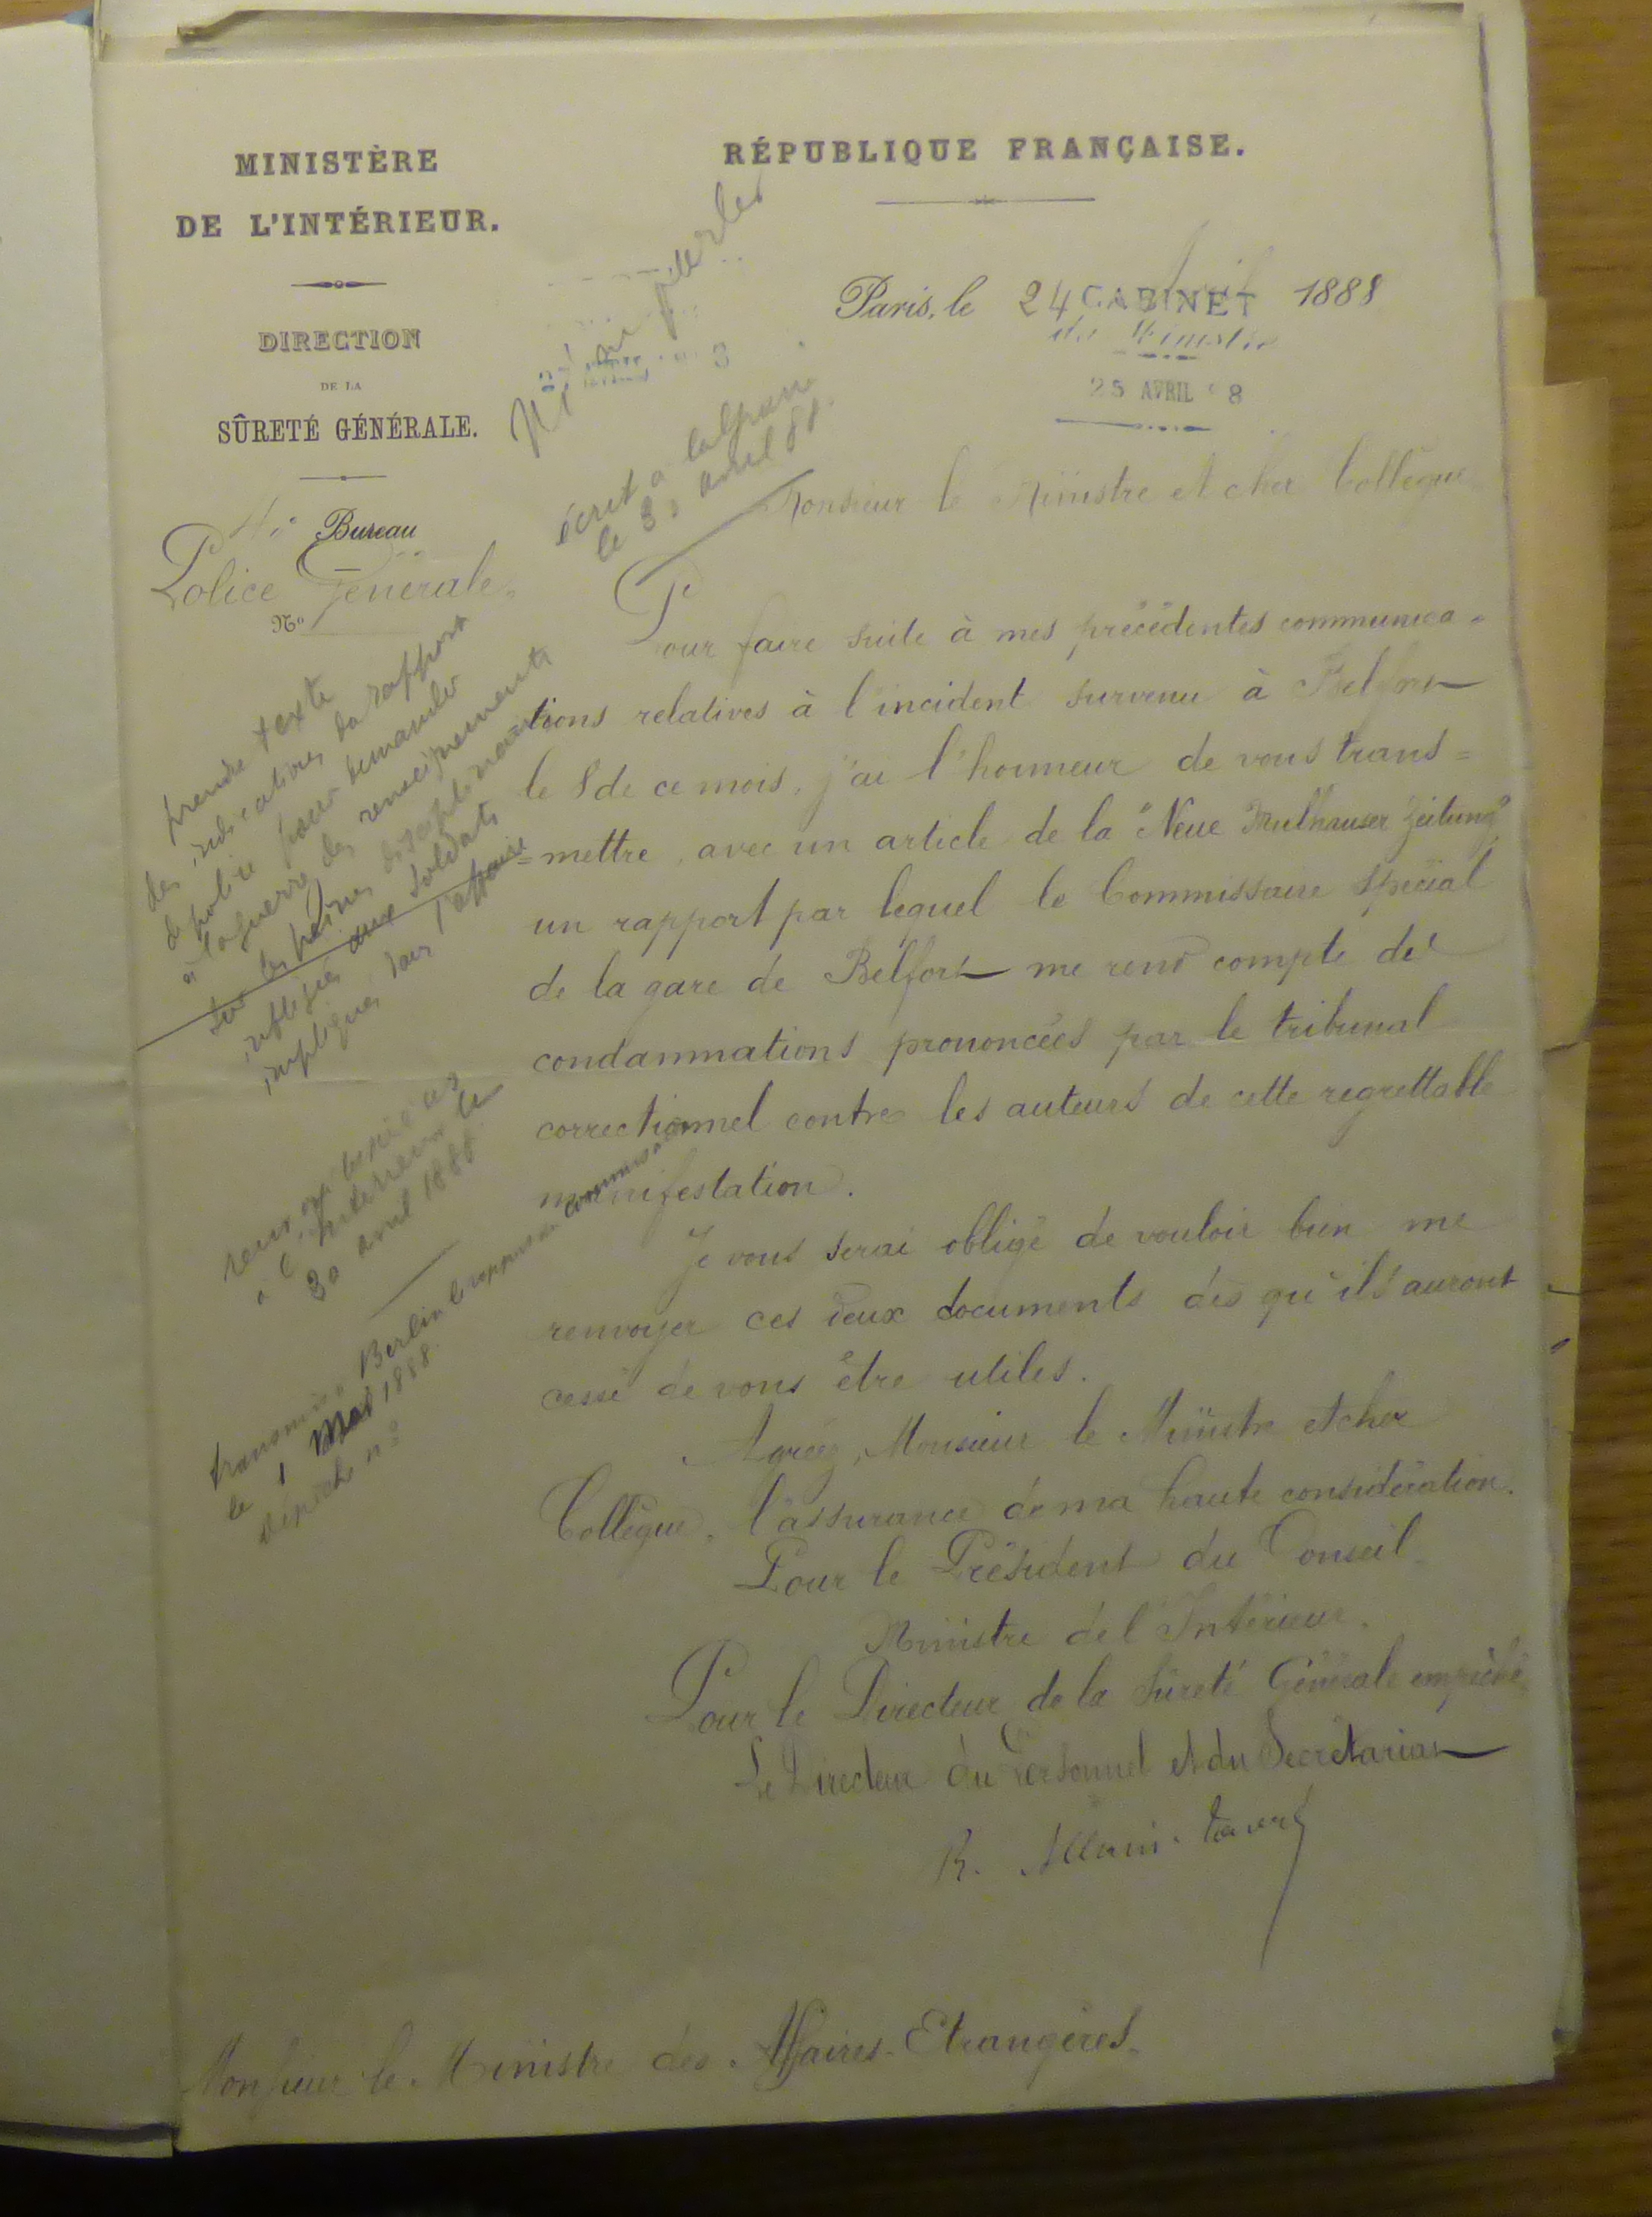 MINISTÈRE
DE L'INTÉRIEUR.
DIRECTION
DE LA
SÛRETÉ GÉNÉRALE.
4e Bureau
Police Générale.
No
RÉPUBLIQUE FRANÇAISE.
Paris, le 24 Avril 1888
CABINET
du Ministre
25 AVRIL 8
écrit à
le 30 avril 88.
Monsieur le Ministre et cher Collègue
Pour faire suite à mes précédentes communica=
tions relatives à l'incident survenu à Belfort
le 8 de ce mois, j'ai l'honneur de vous trans=
=mettre, avec un article de la "Neue Mulhauser Zeitung",
un rapport par lequel le Commissaire spécial
de la gare de Belfort me rend compte des
condamnations prononcées par le tribunal
correctionnel contre les auteurs de cette regrettable
manifestation.
Je vous serai obligé de vouloir bien me
renvoyer ces deux documents dès qu'ils auront
cessé de vous être utiles.
Agréez, Monsieur le Ministre et cher
Collègue, l'assurance de ma haute considération.
Pour le Président du Conseil
Ministre de l'Intérieur.
Pour le Directeur de la Sûreté Générale empêché
Le Directeur du Personnel et du Secrétariat
R. Allain-Targé
Monsieur le Ministre des Affaires-Etrangères.
prendre texte
des indications du rapport
de police pour demander
à la guerre des renseignements
sur les peines disciplinaires
infligées aux soldats
impliqués dans l'affaire
à l'Intérieur le
30 avril 1888.
transmis à Berlin le rapport du commissaire
le 1 Mai 1888.
dépêche no